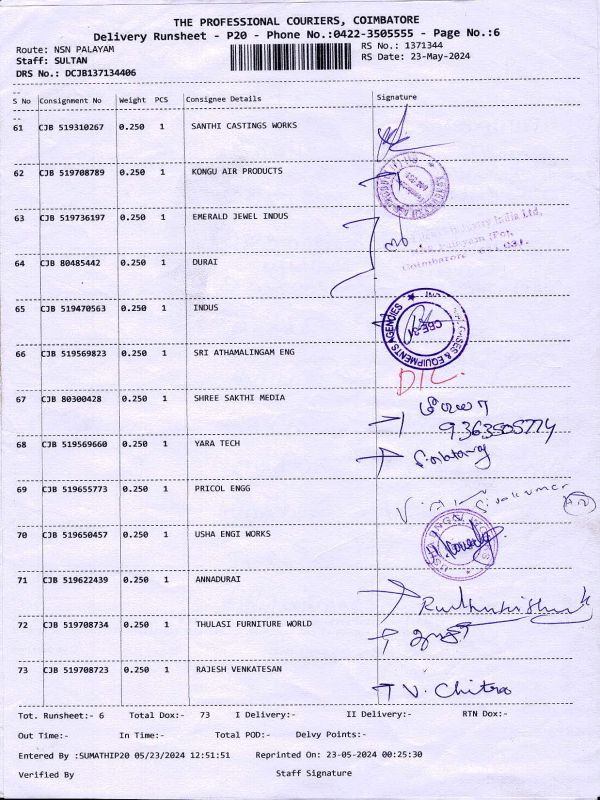 THE PROFESSIONAL COURIERS, COIMBATORE
Delivery Runsheet - P20 - Phone No.:0422-3505555 - Page No.:6
Route: NSN PALAYAM RS No.: 1371344
Staff: SULTAN RS Date: 23-May-2024
DRS No.: DCJB137134406
S No Consignment No Weight PCS Consignee Details Signature
61 CJB 519310267 0.250 1 SANTHI CASTINGS WORKS
62 CJB 519708789 0.250 1 KONGU AIR PRODUCTS
63 CJB 519736197 0.250 1 EMERALD JEWEL INDUS
64 CJB 80485442 0.250 1 DURAI
65 CJB 519470563 1 INDUS
& EQUIPMENTS AGENCIES
CBE-31
66 CJB 519569823 0.250 1 SRI ATHAMALINGAM ENG
D/L.
67 CJB 80300428 0.250 1 SHREE SAKTHI MEDIA
9363505774
68 CJB 519569660 0.250 1 YARA TECH
69 CJB 519655773 0.250 1 PRICOL ENGG
70 CJB 519650457 0.250 1 USHA ENGI WORKS
71 CJB 519622439 0.250 1 ANNADURAI
72 CJB 519708734 0.250 1 THULASI FURNITURE WORLD
73 CJB 519708723 0.250 1 RAJESH VENKATESAN
T V. Chitra
Tot. Runsheet:- 6 Total Dox:- 73 I Delivery:- II Delivery:- RTN Dox:-
Out Time:- In Time:- Total POD:- Delvy Points:-
Entered By :SUMATHIP20 05/23/2024 12:51:51 Reprinted On: 23-05-2024 00:25:30
Verified By Staff Signature